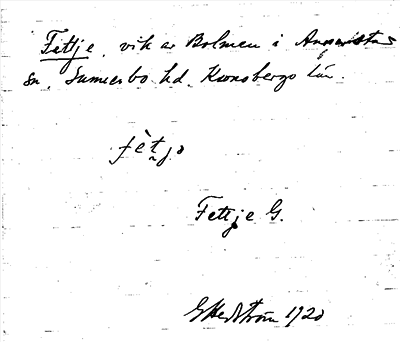 Fettje, vik av Bolmen i Annerstas
sn. Sunnerbo hd. Kronobergs län.
fètjə
Fettje G.
G Hedström 1920